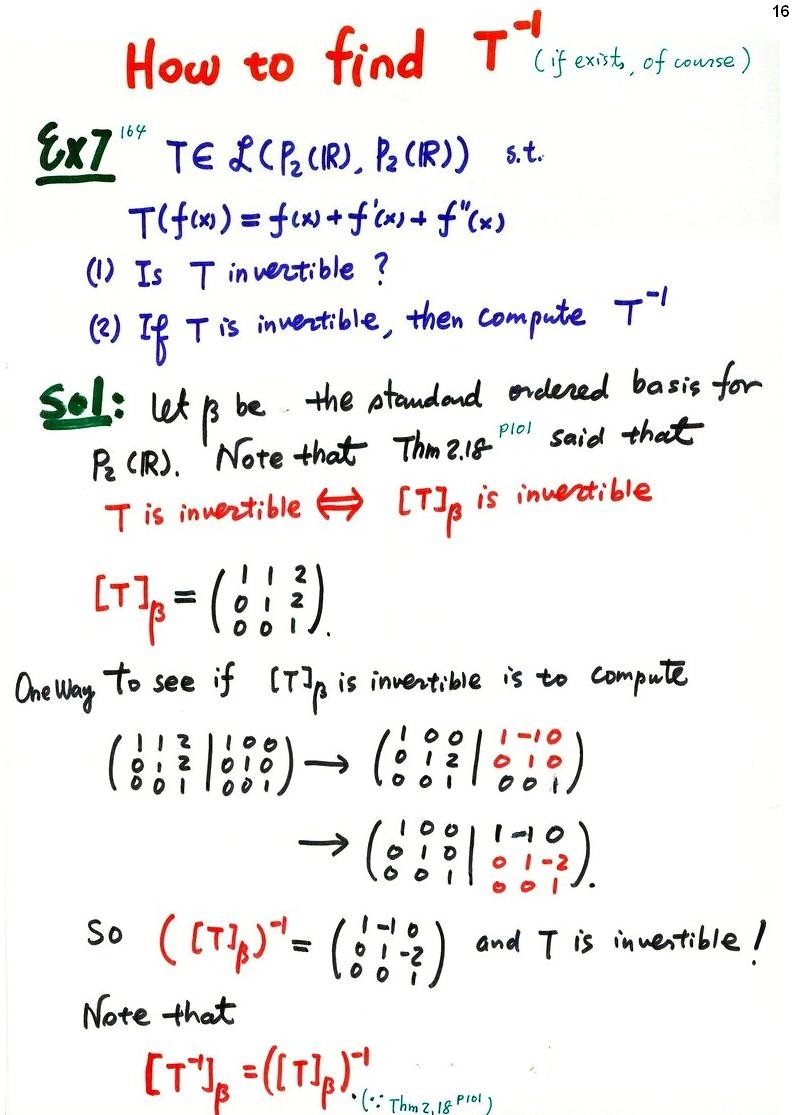 16
How to find T⁻¹ (if exists, of course)
Ex7 164 T∈ ℒ(P₂(ℝ), P₂(ℝ)) s.t.
T(f(x)) = f(x) + f'(x) + f"(x)
(1) Is T invertible ?
(2) If T is invertible, then compute T⁻¹
Sol: Let β be the standard ordered basis for
P₂(ℝ). Note that Thm 2.18 P101 said that
T is invertible ⟺ [T]β is invertible
[T]β = ( 1 1 2
0 1 2
0 0 1 ).
One Way To see if [T]β is invertible is to compute
( 1 1 2 | 1 0 0 ) → ( 1 0 0 | 1 -1 0 )
( 0 1 2 | 0 1 0 ) ( 0 1 2 | 0 1 0 )
( 0 0 1 | 0 0 1 ) ( 0 0 1 | 0 0 1 )
→ ( 1 0 0 | 1 -1 0
0 1 0 | 0 1 -2
0 0 1 | 0 0 1 ).
So ([T]β)⁻¹ = ( 1 -1 0
0 1 -2
0 0 1 ) and T is invertible !
Note that
[T⁻¹]β = ([T]β)⁻¹. (∵ Thm 2.18 P101)